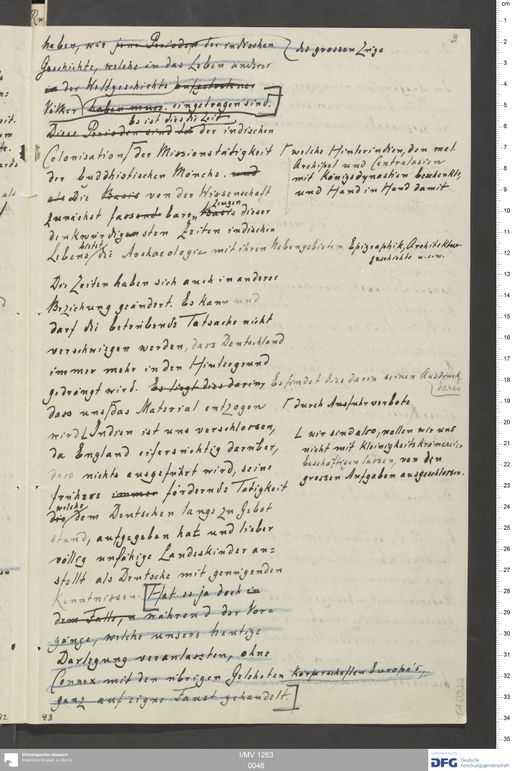 3.
haben, wie jene Perioden der indischen die grossen Züge
Geschichte, welche in das Leben anderer
in der Weltgeschichte aufgetretener
Völker haben muss. eingetragen sind.
Es ist dies die Zeit
Diese Perioden sind die der indischen
Colonisation der Missionstätigkeit
der buddhistischen Mönche. und
welche Hinterindien, den mal.
Archipel und Centralasien
mit Königsdynastien beschenkte,
und Hand in Hand damit
als Die Basis von der Wissenschaft
zunächst fassbaren Basis dieser
Zeugen
denkwürdigsten Zeiten indischen
Lebens bietet die Archaeologie mit ihren Nebengebieten Epigraphik, Architektur-
geschichte u.s.w.
Die Zeiten haben sich auch in anderer
Beziehung geändert. Es kann und
darf die betrübende Tatsache nicht
verschwiegen werden, dass Deutschland
immer mehr in den Hintergrund
gedrängt wird. Es liegt dies darin, Es findet dies darin seinen Ausdruck,
dass uns das Material entzogen
durch Ausfuhrverbote
wird Indien ist uns verschlossen,
wir sind also, wollen wir uns
nicht mit Kleinigkeitskrämereien
beschäftigen lassen, von den
grossen Aufgaben ausgeschlossen.
da England eifersüchtig darüber,
dass nichts ausgeführt wird, seine
frühere immer fördernde Tätigkeit
welche
die dem Deutschen lange zu Gebot
stand, aufgegeben hat und lieber
völlig unfähige Landeskinder an=
stellt als Deutsche mit genügenden
Kenntnissen. Hat es ja doch in
dem Falle, während der Vor=
gänge, welche unsere heutige
Darlegung veranlassten, ohne
Connex mit den übrigen Gelehrten Körperschaften Europa's,
ganz auf eigne Faust gehandelt
43
I/MV 1263
0046
Ethnologisches Museum
Staatliche Museen zu Berlin
DFG Deutsche
Forschungsgemeinschaft